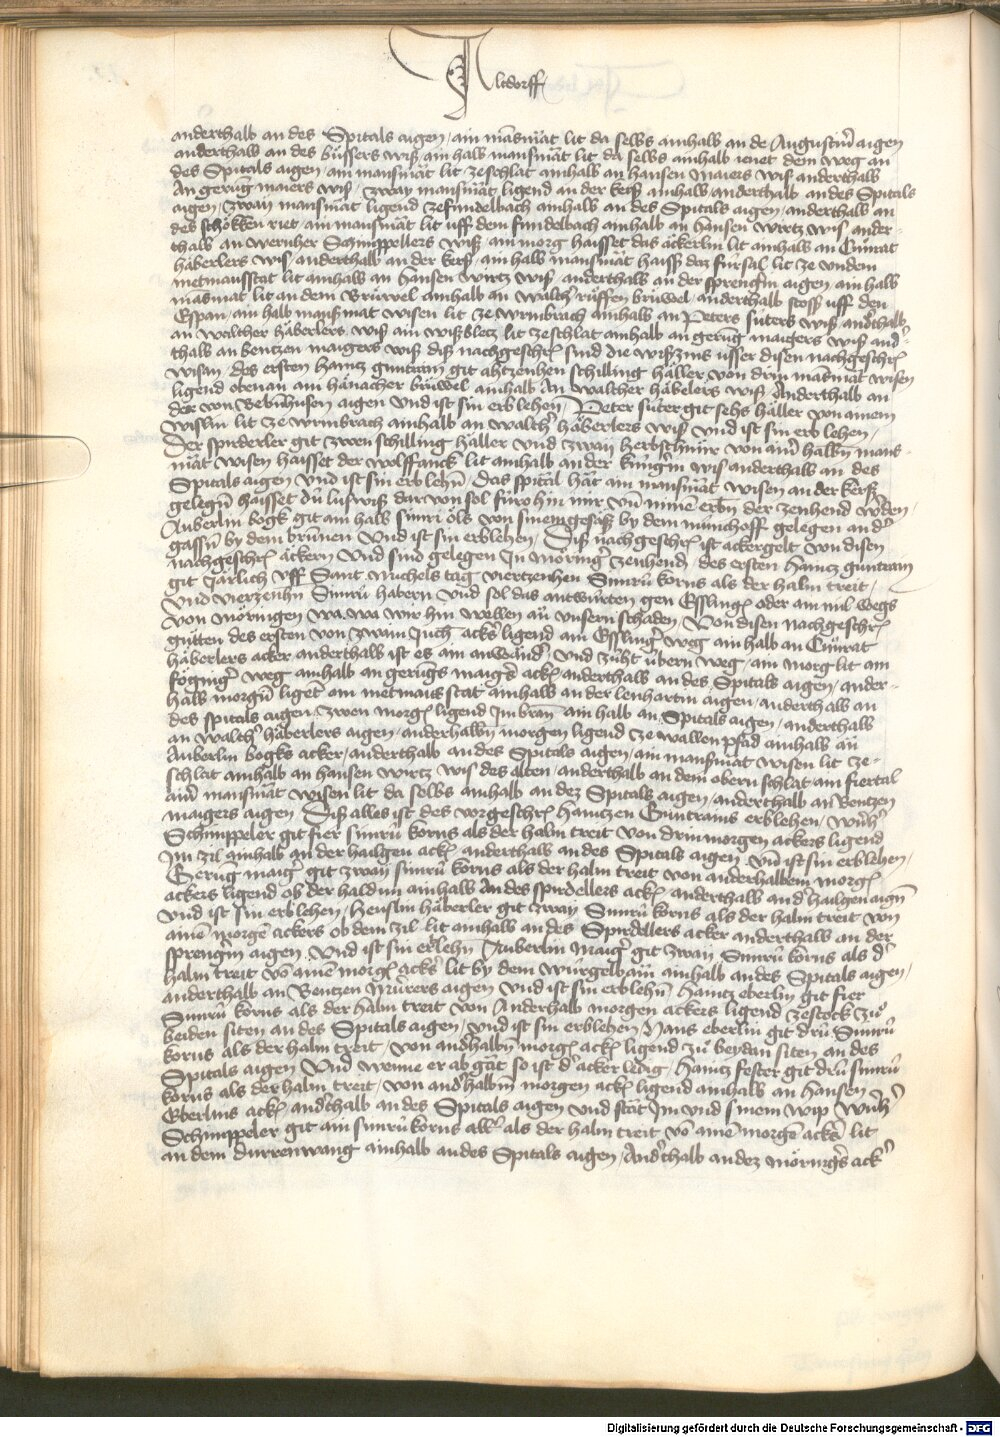 Altdorff
anderthalb an des Spitals aigen / ain mãsmat lit da selbs ainhalb an de Augustinͬ aigen
anderthalb an des büssers wiß ain halb mansmat lit da selbs ainhalb ienet dem weg an
des Spitals aigen / ain mansmat lit ze schlat ainhalb an hansen maiers wis anderthalb
An gerung maiers wiß / zway mansmat ligend an der kerß ainhalb anderthalb an des Spitals
aigen / zway mansmat ligend ze fundelbach ainhalb an des Spitals aigen / anderthalb an
des schokken riet / ain mansmat lit uff dem fundelbach ainhalb an hansen wirtz wis ander-
thalb an wernher Schnuppellers wiß / ain morg haisset das äckerlin lit ainhalb an Cunrat
häberlers wis / anderthalb an der kerß / ain halb mansmat haiss daz fursal lit ze undern
metmansstat lit ainhalb an hansen wirtz wis / anderthalb an der sprengin aigen / ain halb
mãsmat lit an dem Brüwel ainhalb an walthͬ rüssen brüwel / anderthalb stoss uff den
Espan / ain halb mansmat wisen lit ze wrmbrach ainhalb an Peters suters wiß / andͬthalb
an walther häberlers wiß ain wißbletz lit ze schlat ainhalb an gerung maigers wiß andͬ-
thalb an bentzen maigers wiß diß nachgeschrͤ sind die wißzins usser disen nachgeschrͤ
wisan / des ersten haintz guntram git ahtzenhen schilling haller von drin mãsmat wisen
ligend obenan am hänacher brüwel ainhalb an walther häbelers wiß Anderthalb an
der von Bebenhusen aigen und ist sin erblehen / Peter suter git sehs häller von ainem
wislin lit ze wrmbrach ainhalb an walthͬ häberlers wiß und ist sin erb lehen /
Der spindeler git zwen schilling haller und zway herbsthuͤnr von aimͬ halbñ mans-
mat wisen haisset der wolffanck lit ainhalb an der kunigin wis anderthalb an des
Spitals aigen und ist sin erb lehñ / Das spital hat ain mansmat wisen an der kerß
gelegñ haisset du luswiß dar von sol furo hin mir uñ minẽ erbñ der zenhend wͬden /
Auberlin bogk git ain halb simri öls von sinem gesäß by dem munchoff gelegen an dͬ
gassñ by dem brunen und ist sin erblehen / Diß nachgeschrͤ ist ackergelt von disen
nachgeschrͤ äckern und sind gelegen In möringͬ zenhend / des ersten haintz guntram
git Järlich uff Sant Michels tag viertzenhen Simru korns als der halm treit /
und vierzenhñ Simru habern und sol das antwurten gen Esslingͤ oder ain mil wegs
von möringen wa wa wir hin wellen an unsern schaden / Von disen nachgeschrͤ
guͤtten des ersten von zwain Juch ackͬs ligend am Esslingͬ weg ain halb an Cunrat
häberlers acker anderthalb ist es ain anwandͬ und zuht ubern weg / ain morg lit am
fögnigͬ weg ainhalb an gerungs maigͬs ackͤ / anderthalb an des Spitals aigen / ander-
halb morgñ liget am metmans stat ainhalb an der lenhartin aigen / anderthalb an
des spitals aigen zwen morgͤ ligend Im bran ain halb an Spitals aigen / anderthalb
an walthͬ häberlers aigen / anderhalbñ morgen ligend ze wallenpfad ainhalb an
Auberlin bogks acker / anderthalb an des Spitals aigen / ain mansmat wisen lit ze-
schlat ainhalb an hansen wirtz wis des alten / anderthalb an dem obern schlat ain fiertal
aimͬ mansmat wisen lit da selbs ainhalb an dez Spitals aigen / anderthalb an Bentzen
maigers aigen / Diß alles ist des vorgeschrͤ haintzen Guntrams erblehen / wernhͬ
Schnuppeler git fier simru korns als der halm treit von drin morgen ackers ligend
Im zil ainhalb an der hailgen ackͤ anderthalb an des Spitals aigen uñ ist sin erblehen /
Gerung maigͬ git zway simru korns als der halm treit von anderhalbem morgͤ
ackers ligend ob der haldun ainhalb an des spindellers ackͤ anderthalb an dͬ hailgen aigñ
und ist sin erblehen / henslin häberler git zway Simru korns als der halm treit von
ainẽ morgẽ ackers ob dem zil lit ainhalb an des Spindellers acker anderthalb an der
sprengin aigen und ist sin erblehñ Auberlin Maigͬ git zway Simru korns als dͬ
halm treit võ ainẽ morgͤ ackͬs lit by dem würgelbain ainhalb an des Spitals aigen /
anderthalb an Bentzen Mürers aigen und ist sin erblehñ haintz eberlin git fier
Simru korns als der halm treit von anderhalb morgen ackers ligend ze stock zuͦ
beiden siten an des Spitals aigen / und ist sin erblehen / Hans eberlin git dru Simru
korns als der halm treit / von andͬhalbñ morgͤ ackͤ ligend zuͦ beydan siten an des
Spitals aigen und wenne er ab gät so ist dͬ acker ledig / haintz fester git dru simru
korns als der halm treit / von andͬhalbñ morgen ackͤ ligend ainhalb an hansen
Eberlins ackͤ andͬthalb an des Spitals aigen und stät Im und sinem wip wernhͬ
Schnuppeler git ain simru korns allͬ als der halm treit võ ainẽ morgẽ ackͬs lit
an dem durrenwang ainhalb an des Spitals aigen / Andͬthalb an dez möringͬs ackͬ
Digitalisierung gefördert durch die Deutsche Forschungsgemeinschaft - DFG